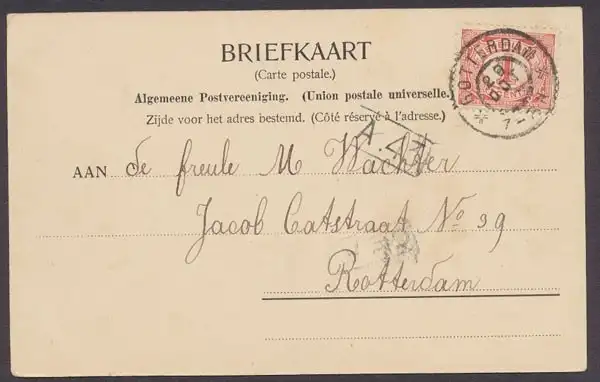 BRIEFKAART
(Carte postale.)
Algemeene Postvereeniging. (Union postale universelle.)
Zijde voor het adres bestemd. (Côté réservé à l'adresse.)
ROTTERDAM
1
CENT
A.
AAN de freule M Wachter
Jacob Catstraat No 39
Rotterdam